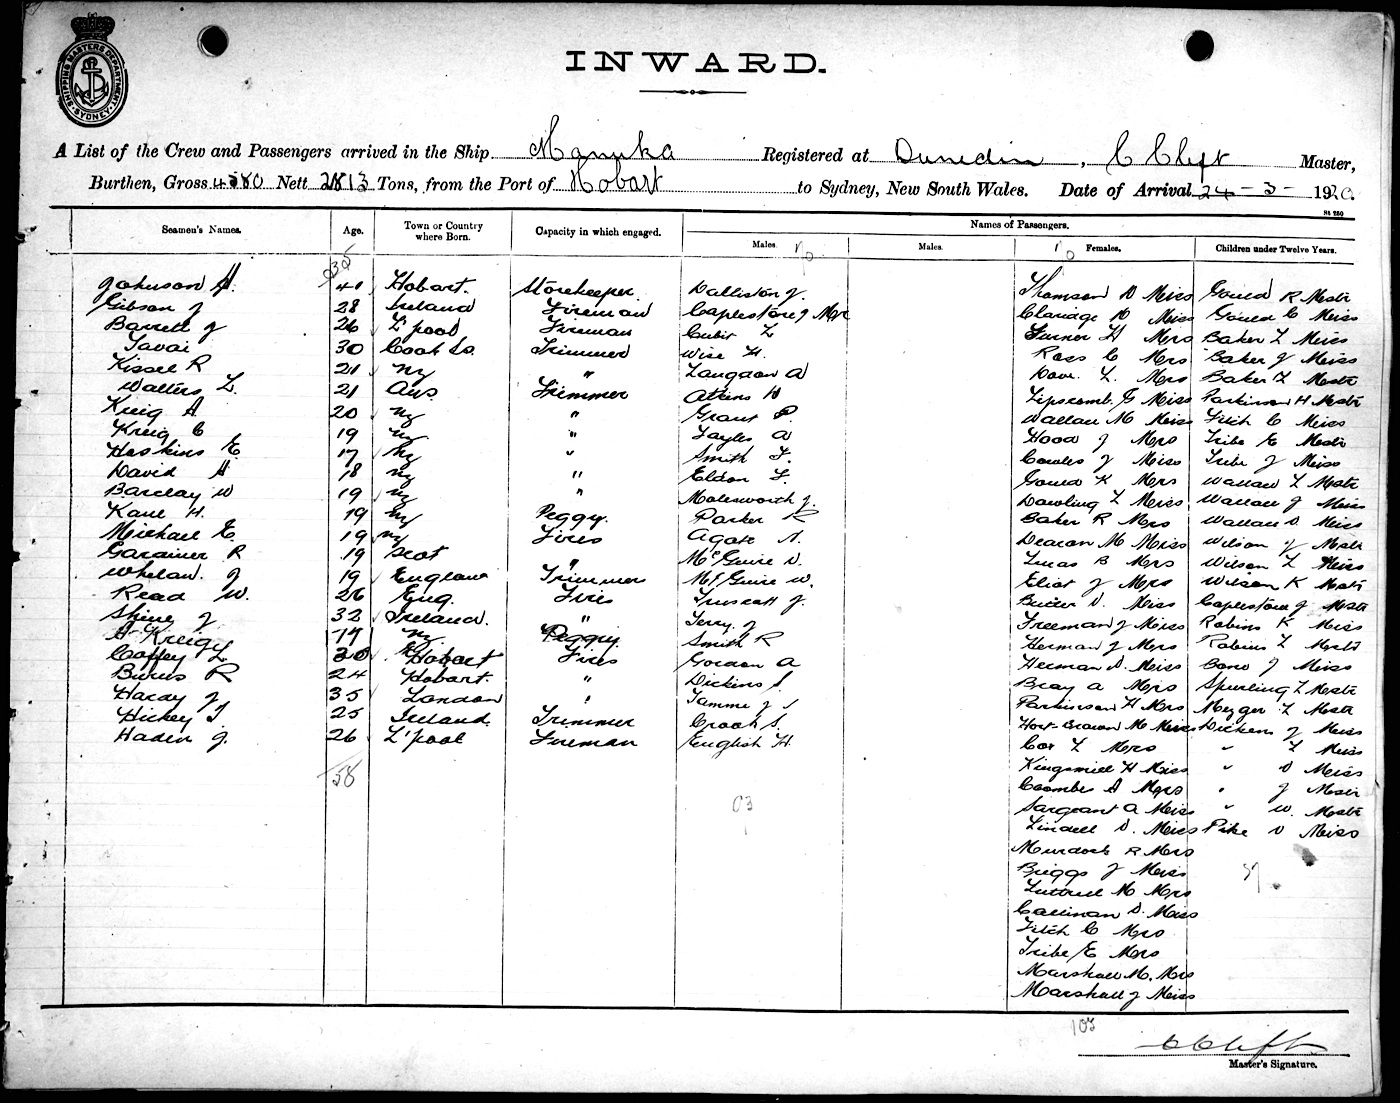 SHIPPING MASTERS DEPARTMENT SYDNEY
INWARD.
A List of the Crew and Passengers arrived in the Ship Manuka Registered at Dunedin, C Clift Master,
Burthen, Gross 4580 Nett 2813 Tons, from the Port of Hobart to Sydney, New South Wales. Date of Arrival 24-3-1920.
St 250
Seamen's Names. Age. Town or Country where Born. Capacity in which engaged. Names of Passengers.
Males. Males. Females. Children under Twelve Years.
35
Johnson A. 40 Hobart. Storekeeper. Dalliston J. Thomson D Miss Gould R Mastr
Gibson J 28 Ireland Fireman Caplestone J Mr Claridge D Miss Gould C Miss
Barrett J 26 L'pool Fireman Cubit L Turner H Mrs Baker L Miss
Savai 30 Cook Is. Trimmer Wise H. Ross C Mrs Baker J Miss
Kissel R 21 NZ " Langdon A Dove L. Mrs Baker L Mastr
Walters L. 21 Aus Trimmer Atkins H Lipscomb. G Miss Parkinson H Mastr
Kreig A 20 NZ " Grant P. Wallace M Miss Fitch C Miss
Kreig C 19 NZ " Tayles A Hood J Mrs Tribe E Mastr
Hoskins E 17 NZ " Smith F. Cowles J Miss Tribe J Miss
David A 18 NZ " Eldon F. Gould K Mrs Wallace L Mastr
Barclay W 19 NZ " Molesworth J. Dowling L Miss Wallace J Miss
Kane H. 19 NZ Peggy. Parker K Baker R Mrs Wallace D Miss
Michael E. 19 NZ Fires Agate A. Deacon M Miss Wilson J Mastr
Gardiner R 19 Scot " McGuire D. Lucas B Mrs Wilson L Miss
Whelan. J 19 England Trimmers McGuire W. Eliot J Mrs Wilson K Mastr
Read W. 26 Eng. Fires Truscott J. Butler D. Miss Caplestone J Mastr
Shine J 32 Ireland. " Terry. J Freeman J Miss Robins K Miss
A Kreig 17 NZ Peggy Smith R Herman J Mrs Robins L Mastr
Coffey L 20 Hobart Fires Gordon A Herman D. Miss Bond J Miss
Burns R 24 Hobart. " Dickins S. Bray A Mrs Spurling L Mastr
Hardy J 35 London " Tamme J S Parkinson H Mrs Mezger L Mastr
Hickey T 25 Ireland. Trimmer Crook S. Hort-Brown M Miss Dickens J Miss
Hadin J. 26 L'pool Fireman English H. Cox L Mrs " L Miss
58 Kingsmill H Miss " D Miss
Coombes A Mrs " J Mastr
63 Sargeant A Miss " W. Mastr
Lindell D. Miss Pike D Miss
Murdoch R Mrs
Briggs J Miss
Luttrell M Mrs
Calliman D. Miss
Fitch C Mrs
Tribe E Mrs
Marshall M. Mrs
Marshall J Miss
103
C Clift
Master's Signature.